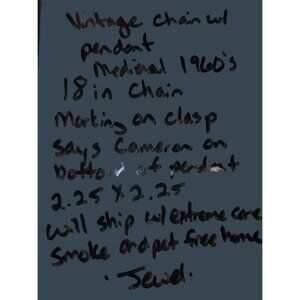 Vintage Chain w/
pendant
Medieval 1960's
18 in Chain
Marking on clasp
says Cameron on
bottom of pendant
2.25 X 2.25
will ship w/ extreme care
Smoke and pet free home
. Jewel .